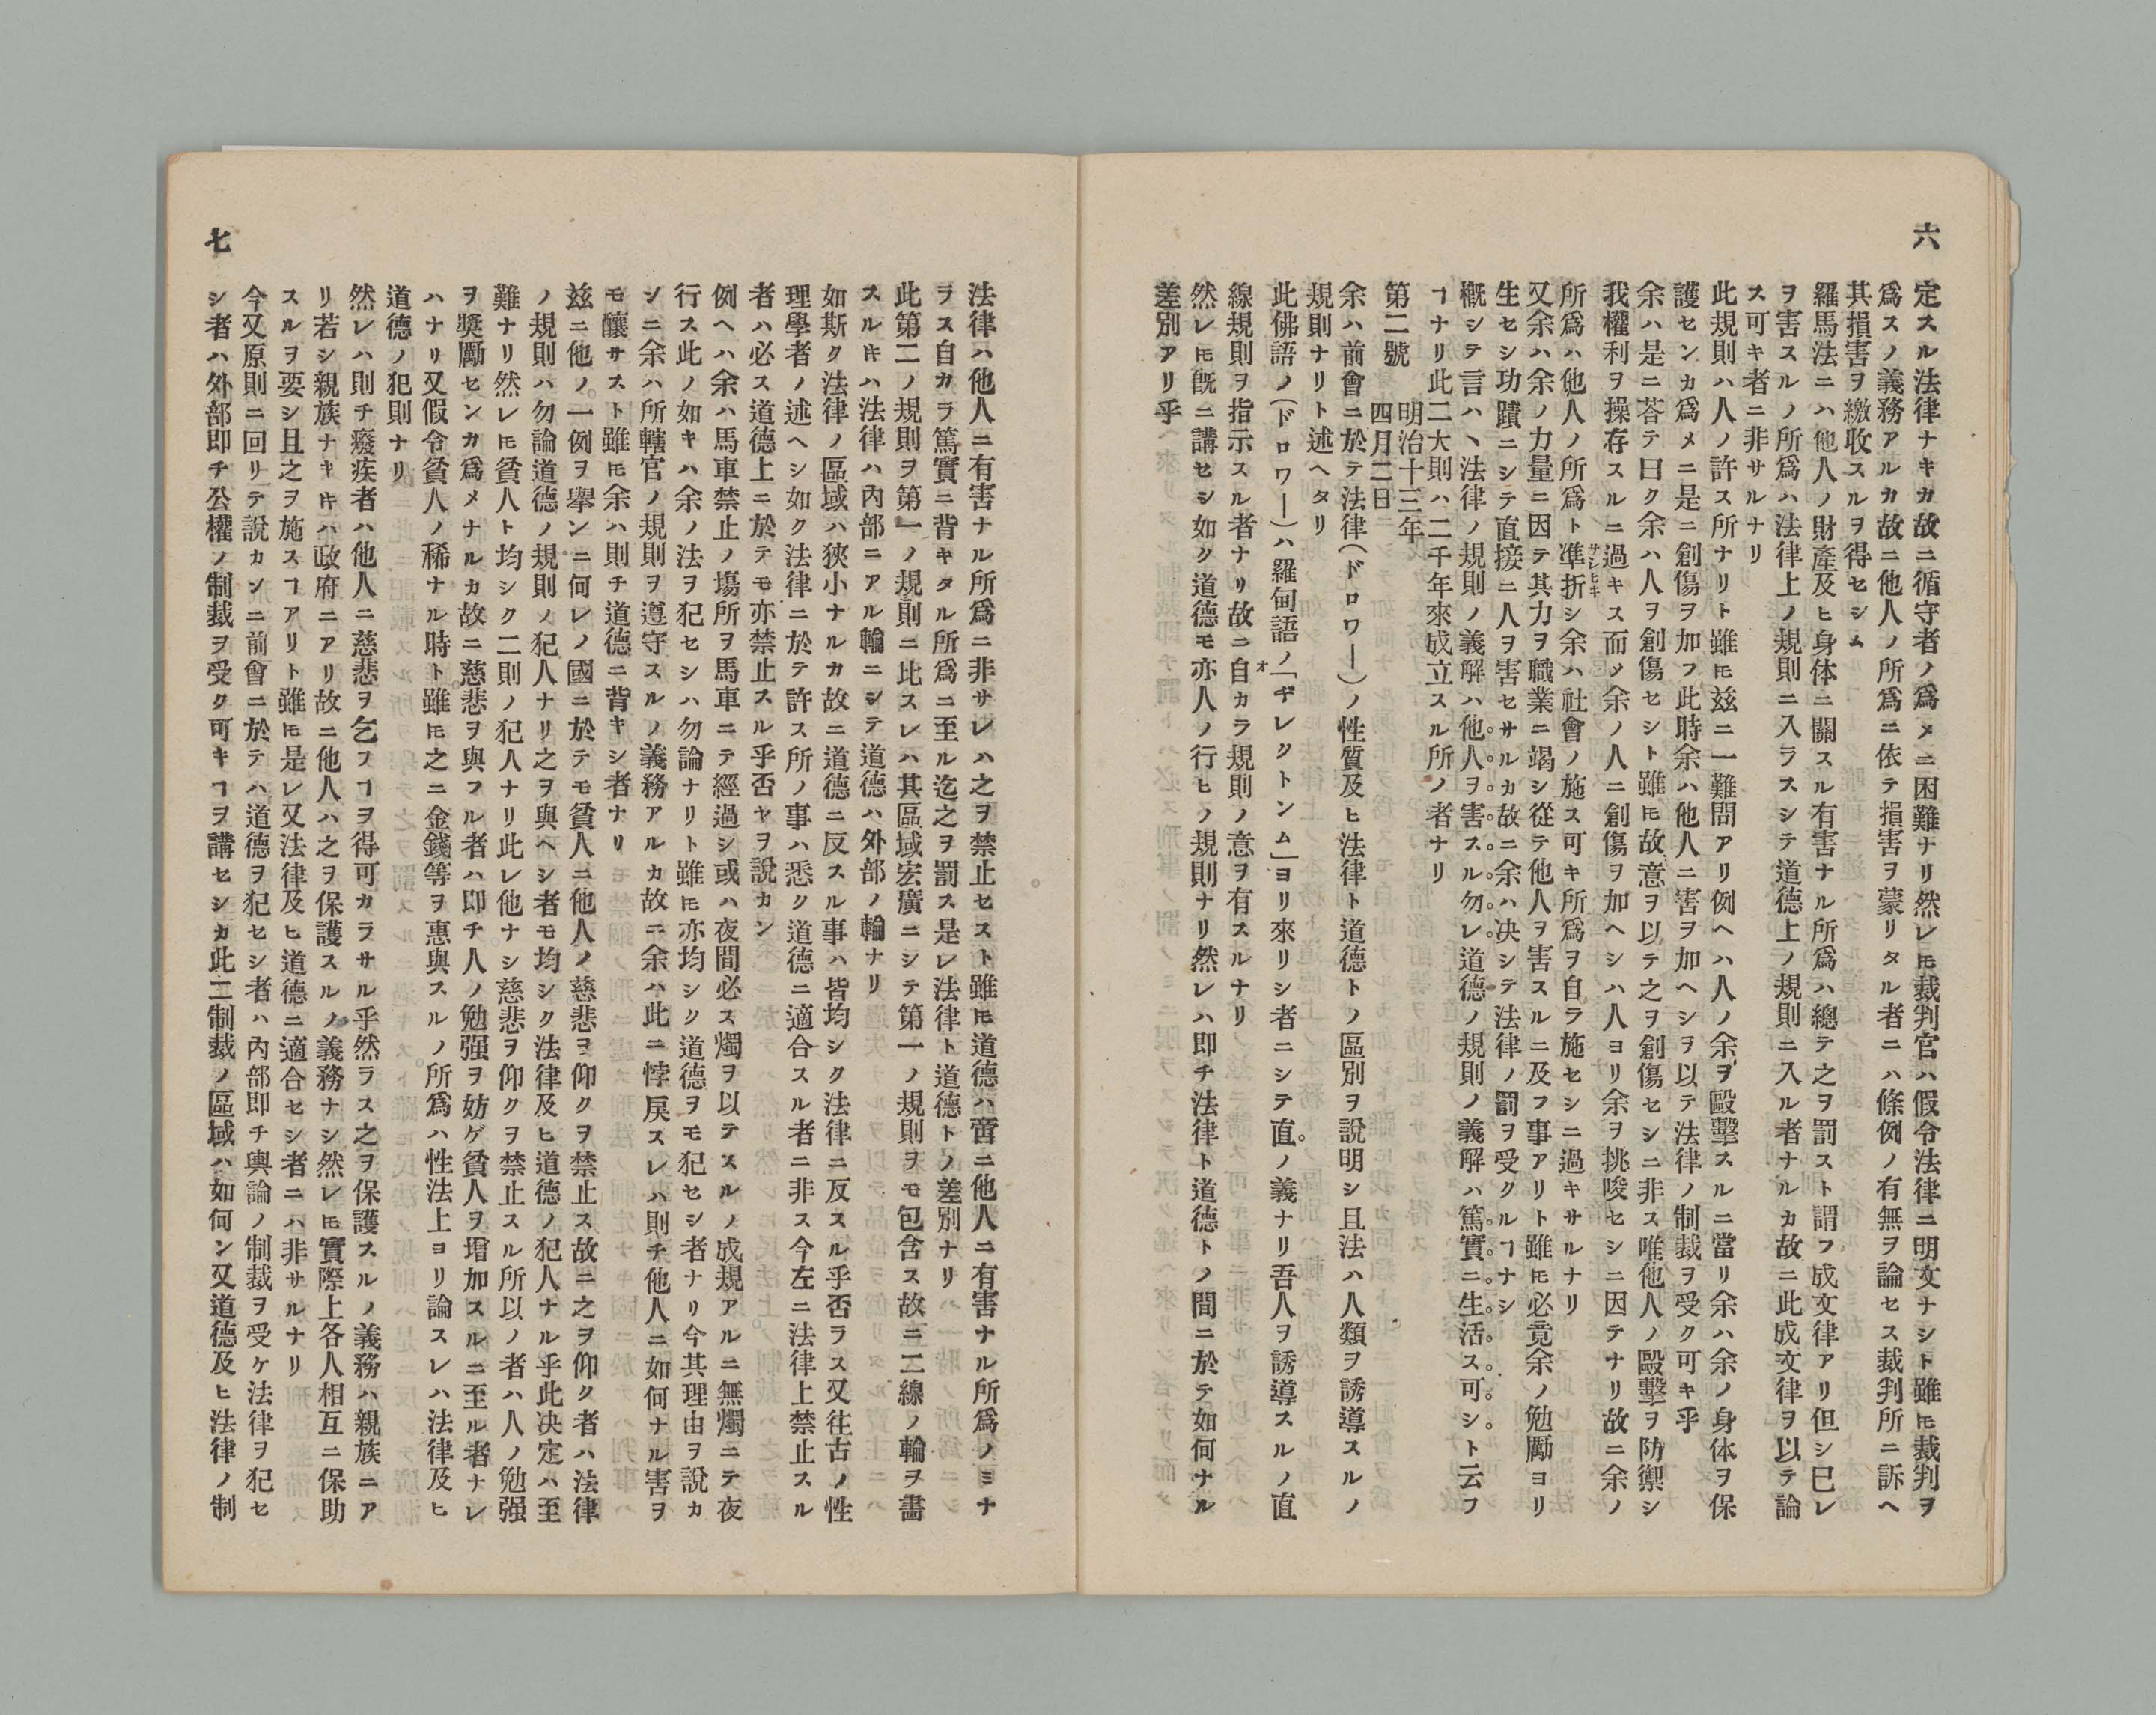 六
定スル法律ナキカ故ニ循守者ノ爲メニ困難ナリ然レ𪜈裁判官ハ假令法律ニ明文ナシト雖𪜈裁判ヲ
爲スノ義務アルカ故ニ他人ノ所爲ニ依テ損害ヲ蒙リタル者ニハ條例ノ有無ヲ論セス裁判所ニ訴ヘ
其損害ヲ繳收スルヲ得セシム
羅馬法ニハ他人ノ財產及ヒ身体ニ關スル有害ナル所爲ハ總テ之ヲ罰スト謂フ成文律アリ但シ已レ
ヲ害スルノ所爲ハ法律上ノ規則ニ入ラスシテ道德上ノ規則ニ入ル者ナルカ故ニ此成文律ヲ以テ論
ス可キ者ニ非サルナリ
此規則ハ人ノ許ス所ナリト雖𪜈玆ニ一難問アリ例ヘハ人ノ余ヲ毆擊スルニ當リ余ハ余ノ身体ヲ保
護センカ爲メニ是ニ創傷ヲ加フ此時余ハ他人ニ害ヲ加ヘシヲ以テ法律ノ制裁ヲ受ク可キ乎
余ハ是ニ荅テ曰ク余ハ人ヲ創傷セシト雖𪜈故意ヲ以テ之ヲ創傷セシニ非ス唯他人ノ毆擊ヲ防禦シ
我權利ヲ操存スルニ過キス而〆余ノ人ニ創傷ヲ加ヘシハ人ヨリ余ヲ挑唆セシニ因テナリ故ニ余ノ
所爲ハ他人ノ所爲ト準折シ余ハ社會ノ施ス可キ所爲ヲ自ラ施セシニ過キサルナリ
又余ハ余ノ力量ニ因テ其力ヲ職業ニ竭シ從テ他人ヲ害スルニ及フ事アリト雖𪜈必竟余ノ勉勵ヨリ
生セシ功蹟ニシテ直接ニ人ヲ害セサルカ故ニ余ハ决シテ法律ノ罰ヲ受クルヿナシ
概シテ言ハヽ法律ノ規則ノ義解ハ他人ヲ害スル勿レ道德ノ規則ノ義解ハ篤實ニ生活ス可シト云フ
ヿナリ此二大則ハ二千年來成立スル所ノ者ナリ
第二號 明治十三年
四月二日
余ハ前會ニ於テ法律(ドロワー)ノ性質及ヒ法律ト道德トノ區別ヲ說明シ且法ハ人類ヲ誘導スルノ
規則ナリト述ヘタリ
此佛語ノ(ドロワー)ハ羅甸語ノ「ヂレクトンム」ヨリ來リシ者ニシテ直ノ義ナリ吾人ヲ誘導スルノ直
線規則ヲ指示スル者ナリ故ニ自カラ規則ノ意ヲ有スルナリ
然レ𪜈既ニ講セシ如ク道德モ亦人ノ行ヒノ規則ナリ然レハ即チ法律ト道德トノ間ニ於テ如何ナル
差別アリ乎
七
法律ハ他人ニ有害ナル所爲ニ非サレハ之ヲ禁止セスト雖𪜈道德ハ啻ニ他人ニ有害ナル所爲ノミナ
ラス自カラ篤實ニ背キタル所爲ニ至ル迄之ヲ罰ス是レ法律ト道德トノ差別ナリ
此第二ノ規則ヲ第一ノ規則ニ比スレハ其區域宏廣ニシテ第一ノ規則ヲモ包含ス故ニ二線ノ輪ヲ畵
スルキハ法律ハ內部ニアル輪ニシテ道德ハ外部ノ輪ナリ
如斯ク法律ノ區域ハ狹小ナルカ故ニ道德ニ反スル事ハ皆均シク法律ニ反スル乎否ラス又往古ノ性
理學者ノ述ヘシ如ク法律ニ於テ許ス所ノ事ハ悉ク道德ニ適合スル者ニ非ス今左ニ法律上禁止スル
者ハ必ス道德上ニ於テモ亦禁止スル乎否ヤヲ說カン
例ヘハ余ハ馬車禁止ノ塲所ヲ馬車ニテ經過シ或ハ夜間必ス燭ヲ以テスルノ成規アルニ無燭ニテ夜
行ス此ノ如キハ余ノ法ヲ犯セシハ勿論ナリト雖𪜈亦均シク道德ヲモ犯セシ者ナリ今其理由ヲ說カ
ンニ余ハ所轄官ノ規則ヲ遵守スルノ義務アルカ故ニ余ハ此ニ悖戾スレハ則チ他人ニ如何ナル害ヲ
モ釀サスト雖𪜈余ハ則チ道德ニ背キシ者ナリ
玆ニ他ノ一例ヲ擧ンニ何レノ國ニ於テモ貧人ニ他人ノ慈悲ヲ仰クヲ禁止ス故ニ之ヲ仰ク者ハ法律
ノ規則ハ勿論道德ノ規則ノ犯人ナリ之ヲ與ヘシ者モ均シク法律及ヒ道德ノ犯人ナル乎此决定ハ至
難ナリ然レ𪜈貧人ト均シク二則ノ犯人ナリ此レ他ナシ慈悲ヲ仰クヲ禁止スル所以ノ者ハ人ノ勉强
ヲ奬勵センカ爲メナルカ故ニ慈悲ヲ與フル者ハ即チ人ノ勉强ヲ妨ゲ貧人ヲ增加スルニ至ル者ナレ
ハナリ又假令貧人ノ稀ナル時ト雖𪜈之ニ金錢等ヲ惠與スルノ所爲ハ性法上ヨリ論スレハ法律及ヒ
道德ノ犯則ナリ
然レハ則チ癈疾者ハ他人ニ慈悲ヲ乞フヿヲ得可カラサル乎然ラス之ヲ保護スルノ義務ハ親族ニア
リ若シ親族ナキキハ政府ニアリ故ニ他人ハ之ヲ保護スルノ義務ナシ然レ𪜈實際上各人相互ニ保助
スルヲ要シ且之ヲ施スヿアリト雖𪜈是レ又法律及ヒ道德ニ適合セシ者ニハ非サルナリ
今又原則ニ回リテ說カンニ前會ニ於テハ道德ヲ犯セシ者ハ內部即チ輿論ノ制裁ヲ受ケ法律ヲ犯セ
シ者ハ外部即チ公權ノ制裁ヲ受ク可キヿヲ講セシカ此二制裁ノ區域ハ如何ン又道德及ヒ法律ノ制